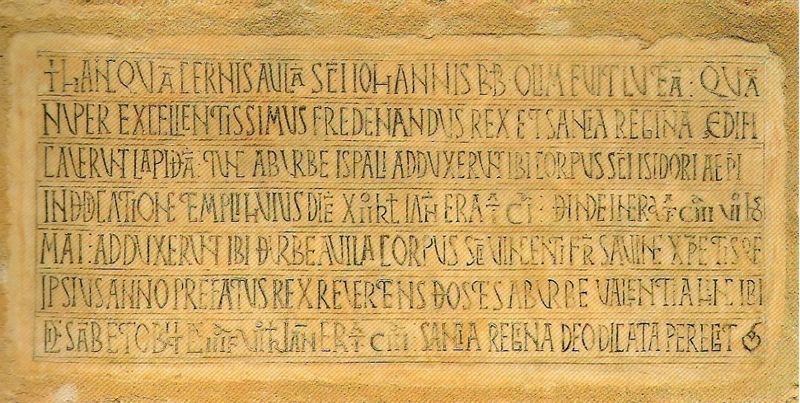 † HANC QUĀ CERNIS AULĀ SC̄I IOHANNIS BB OLIM FUIT LUTEĀ : QUĀ
NUPER EXCELLENTISSIMUS FREDENANDUS REX ET SANCIA REGINA ÆDIFI
CAVERUNT LAPIDEĀ : TUNC AB URBE ISPALI ADDUXERUNT IBI CORPUS SC̄I ISIDORI AEP̄I
IN DEDICATIONE TEMPLI HUIUS DIĒ XII KL IAN̄ ERA T̄ CI : DEINDE IN ERA T̄ CIII VI ID̄S
MAI : ADDUXERUNT IBI DE URBE AVILA CORPUS SC̄I VINCENTI FR̄ SAVINE XPETISQE
IPSIUS ANNO PREFATUS REX REVERTENS DE OSTES AB URBE VALENTIA HINC IBI
DIE SAB̄ ET OBIIT DIE III F VI KL IAN̄ ERA T̄ CIII : SANCIA REGINA DEO DICATA PEREGIT